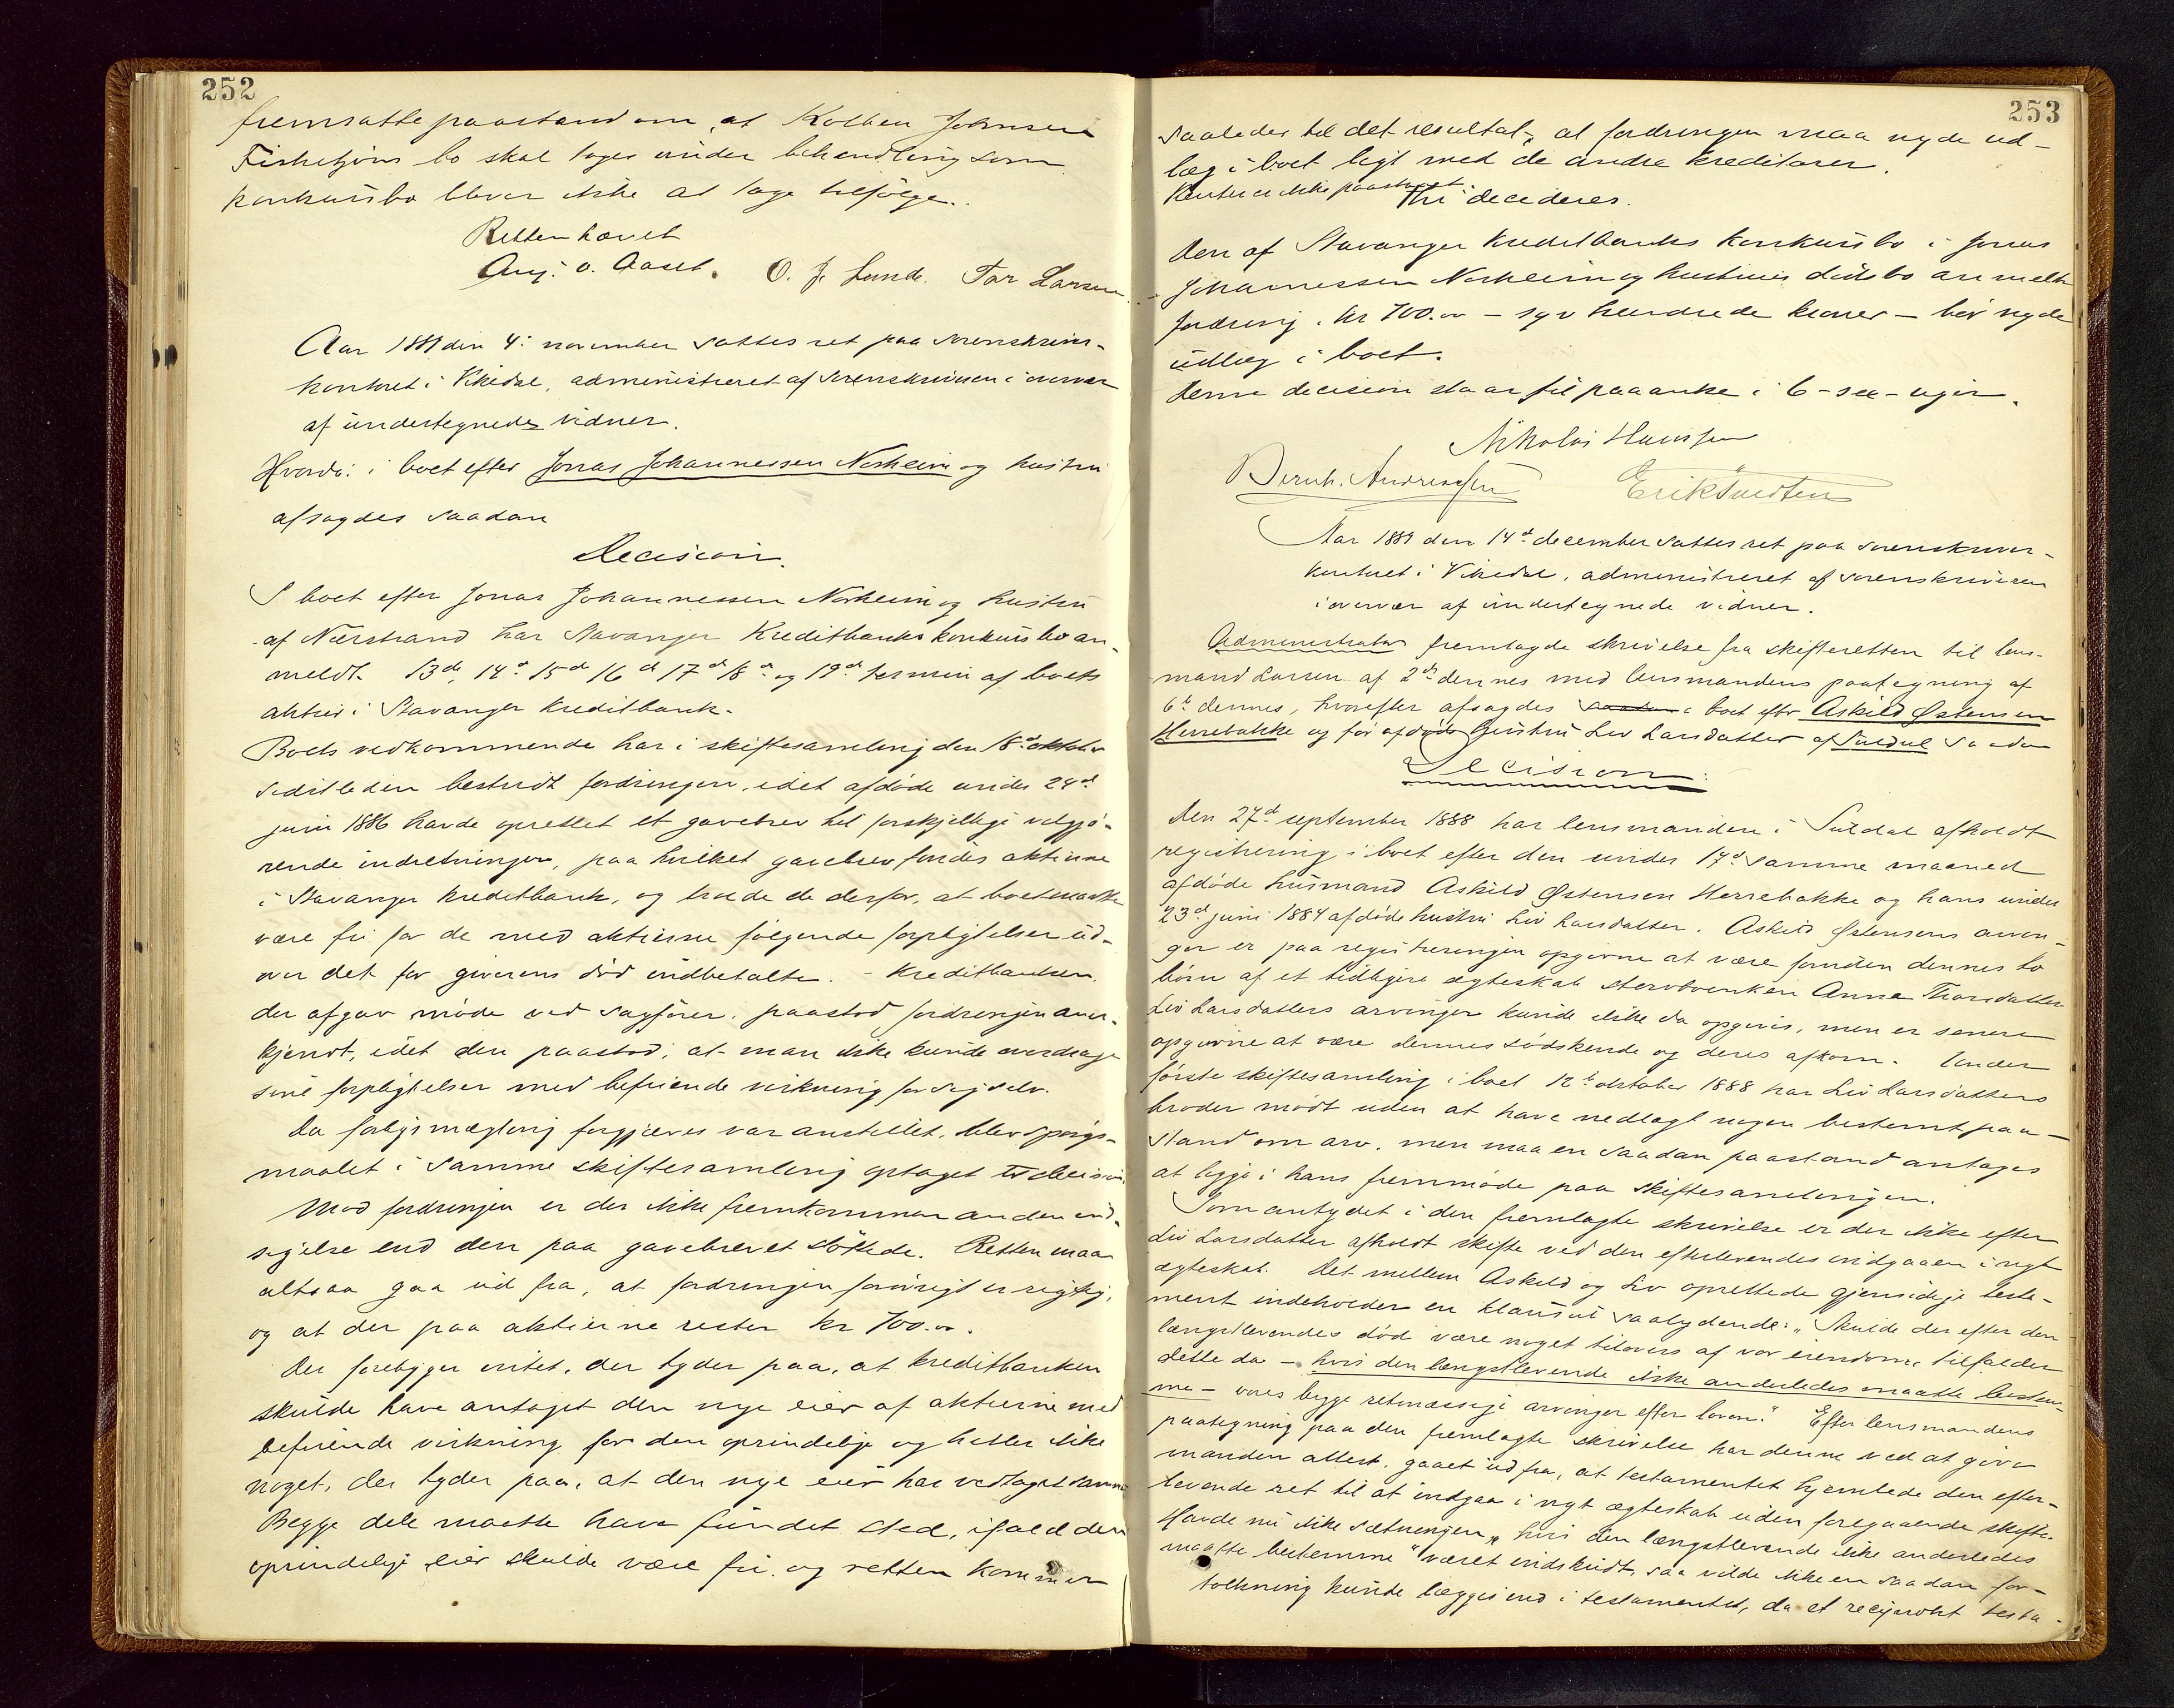 252
fremsatte paastand om, at Kolben Johnsen
Fisketjøns bo skal tages under behandling som
konkursbo bliver ikke at tage tilfølge.
Retten hævet
Aug. v. Aaset. O. J. Lunde. Tor Larsen
Aar 1889 den 4: november sattes ret paa sorenskriver-
kontoret i Vikedal, administreret af sorenskriveren i overvær
af undertegnede vidner.
Hvorda: i boet efter Jonas Johannessen Norheim og hustru
afsagdes saadan
Decision.
I boet efter Jonas Johannessen Norheim og hustru
af Nærstrand har Stavanger Kreditbanks konkursbo an-
meldt 13de, 14d 15de 16d 17d 18d og 19d termin af boets
aktier i Stavanger Kreditbank.
Boets vedkommende har i skiftesamling den 18d oktober
sidstleden bestridt fordringen, idet afdøde under 24d
juni 1886 havde oprettet et gavebrev til forskjellige velgjø-
rende indretninger, paa hvilket gavebrev fandtes aktierne
i Stavanger Kreditbank, og troede de derfor, at boet maatte
være fri for de med aktierne følgende forpligtelser ud-
over det før giverens død indbetalte. - Kreditbanken,
der afgav møde ved sagfører, paastod fordringen aner-
kjendt, idet den paastod, at man ikke kunde overdrage
sine forpligtelser med befriende virkning for sig selv.
Da forligsmægling forgjæves var anstillet, blev spørgs-
maalet i samme skiftesamling optaget til decision.
Mod fordringen er der ikke fremkommen anden ind-
sigelse end den paa gavebrevet støttede. Retten maa
altsaa gaa ud fra, at fordringen forøvrigt er rigtig,
og at der paa aktierne rester kr 700.00.
Der foreligger intet, der tyder paa, at kreditbanken
skulde have antaget den nye eier af aktierne med
befriende virkning for den oprindelige og heller ikke
noget, der tyder paa, at den nye eier har vedtaget samme
Begge dele maatte have fundet sted, ifald den
oprindelige eier skulde være fri. og retten kommer
253
saaledes til det resultat, at fordringen maa nyde ud-
læg i boet ligt med de andre kreditorer.
Renter er ikke paastaaet.
Thi decideres.
Den af Stavanger Kreditbanks konkursbo i Jonas
Johannessen Norheim og hustrues dødsbo anmeldte
fordring, kr 700.00 - syv hundrede kroner - bør nyde
udlæg i boet.
Denne decision staar til paaanke i 6 - sex - uger.
Nikolai Hanssen
Bernh. Andreassen Erik Suldten
Aar 1889 den 14d december sattes ret paa sorenskriver-
kontoret i Vikedal, administreret af sorenskriveren
i overvær af undertegnede vidner.
Administrator fremlagde skrivelse fra skifteretten til lens-
mand Larsen af 2den dennes med lensmandens paategning af
6te dennes, hvorefter afsagdes i boet efter Askild Østensen
Herrebakke og før afdøde hustru Liv Larsdatter af Suldal saadan
Decision:
Den 27d september 1888 har lensmanden i Suldal afholdt
registrering i boet efter den under 17d samme maaned
afdøde husmand Askild Østensen Herrebakke og hans under
23d juni 1884 afdøde hustru Liv Larsdatter. Askild Østensens arvin-
ger er paa registreringen opgivne at være foruden dennes to
børn af et tidligere ægteskab stervboenken Anna Thorsdatter
Liv Larsdatters arvinger kunde ikke da opgives, men er senere
opgivne at være dennes sødskende og deres afkom. Under
første skiftesamling i boet 12te oktober 1888 har Liv Larsdatters
broder mødt uden at have nedlagt nogen bestemt paa-
stand om arv, men maa en saadan paastand antages
at ligge i hans fremmøde paa skiftesamlingen.
Som antydet i den fremlagte skrivelse er der ikke efter
Liv Larsdatter afholdt skifte ved den efterlevendes indgaaen i nyt
ægteskab. Det mellem Askild og Liv oprettede gjensidige testa-
ment indeholder en klausul saalydende: "Skulde der efter den
længstlevendes død være noget tilovers af vor eiendom, tilfalder
dette da - hvis den længstlevende ikke anderledes maatte bestem-
me - vores begge retmæssige arvinger efter loven." Efter lensmandens
paategning paa den fremlagte skrivelse har denne ved at give
manden attest, gaaet ud fra, at testamentet hjemlede den efter-
levende ret til at indgaa i nyt ægteskab uden foregaaende skifte.
Havde nu ikke sætningen "hvis den længstlevende ikke anderledes
maatte bestemme" været indskudt, saa vilde ikke en saadan for-
tolkning kunde lægges ind i testamentet, da et reciprokt testa-